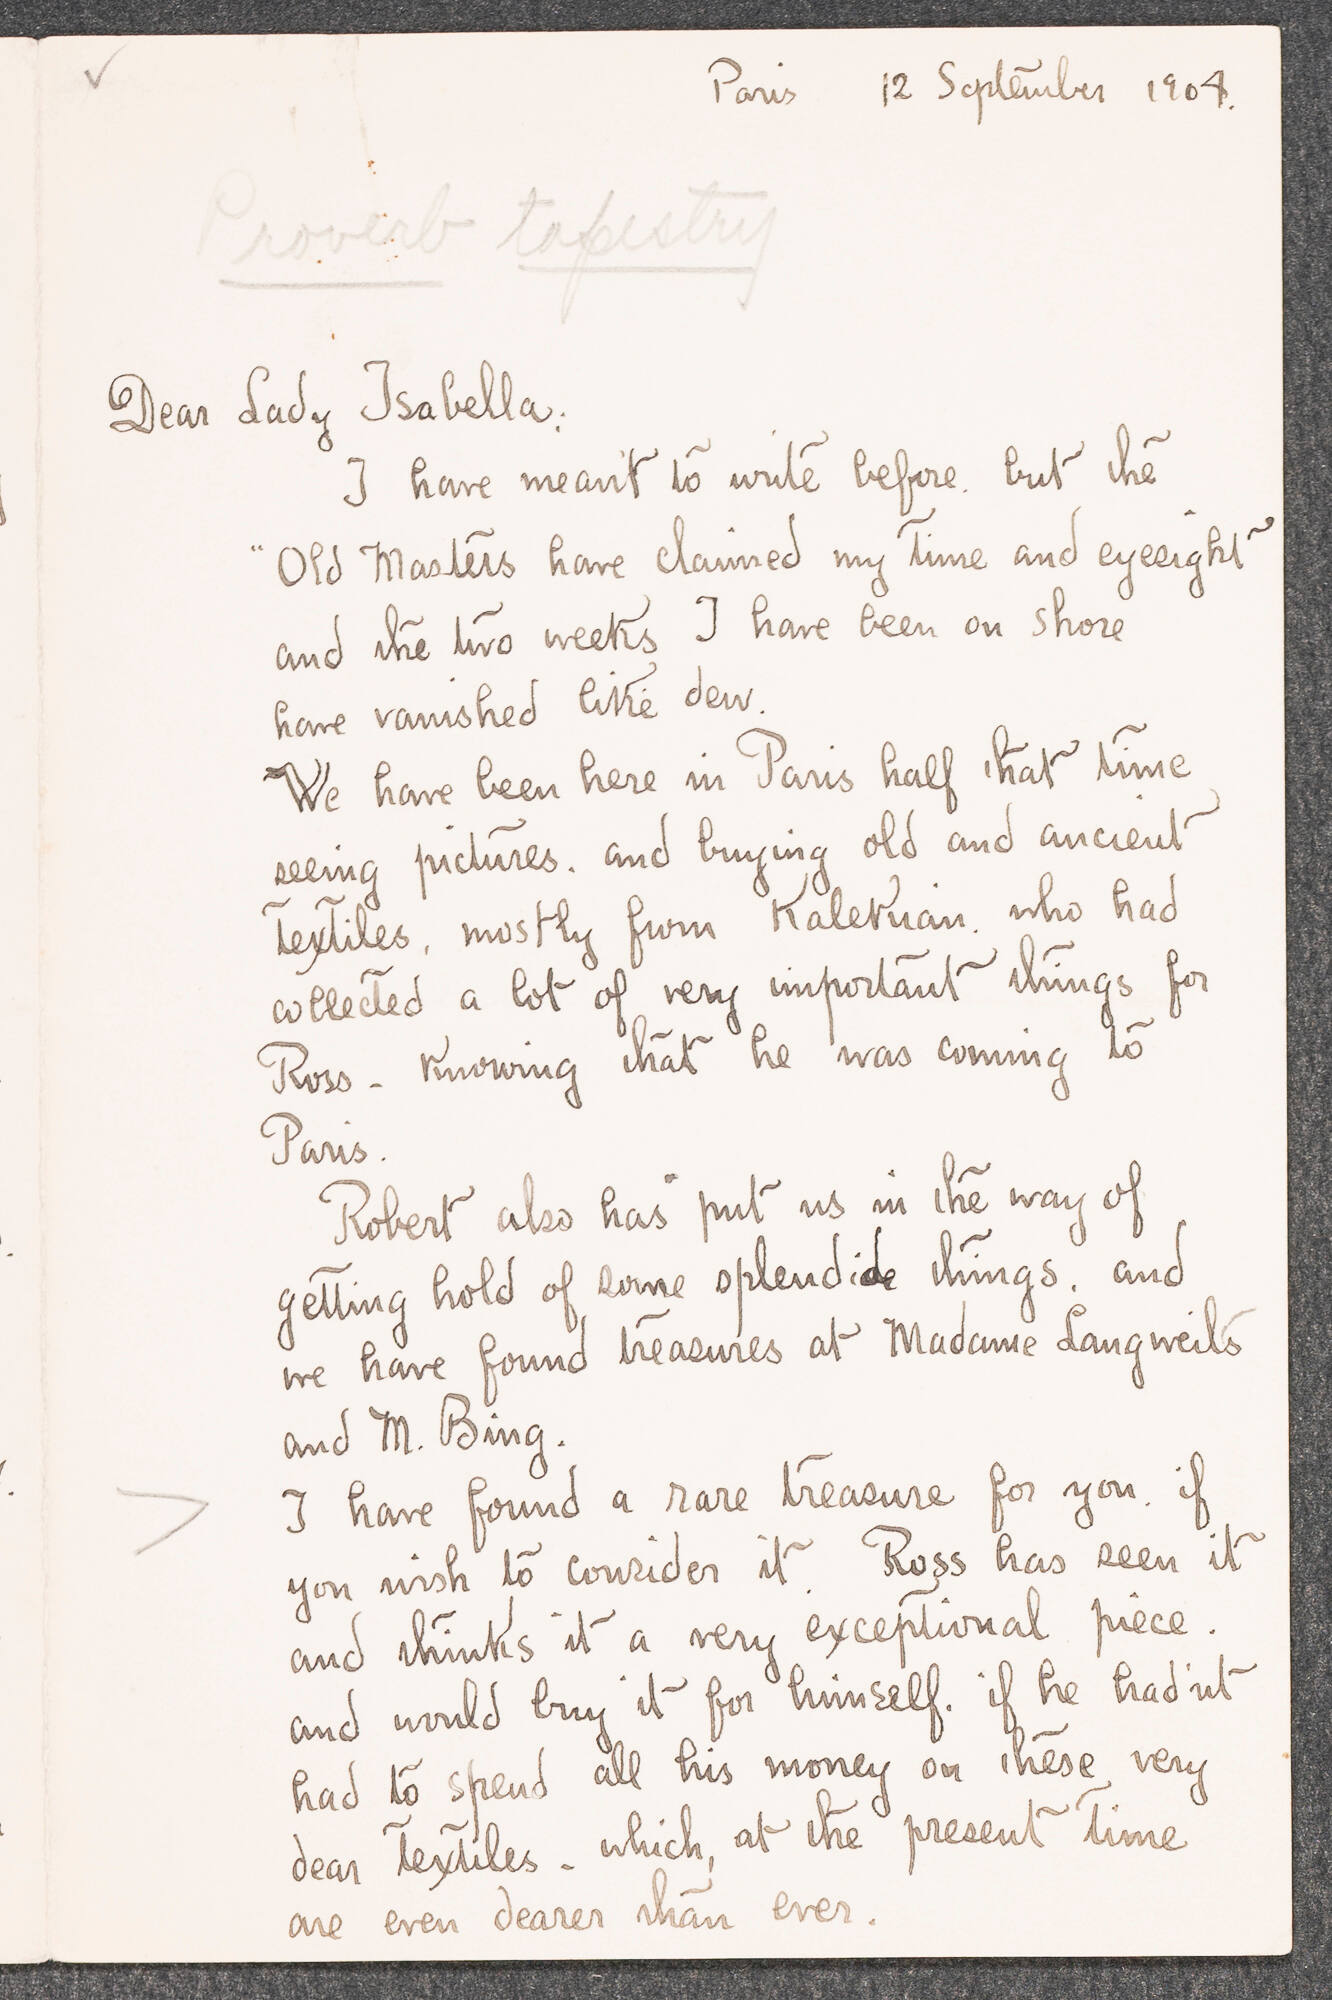 Paris 12 September 1904.
Proverb tapestry
Dear Lady Isabella:
I have meant to write before. but the
"Old Masters have claimed my time and eyesight
and the two weeks I have been on shore
have vanished like dew.
We have been here in Paris half that time
seeing pictures. and buying old and ancient
textiles, mostly from Kalekian. who had
collected a lot of very important things for
Ross - knowing that he was coming to
Paris.
Robert also has put us in the way of
getting hold of some splendide things. and
we have found treasures at Madame Langweil's
and M. Bing.
I have found a rare treasure for you. if
you wish to consider it. Ross has seen it
and thinks it a very exceptional piece.
and would buy it for himself. if he had'nt
had to spend all his money on these very
dear textiles - which, at the present time
are even dearer than ever.